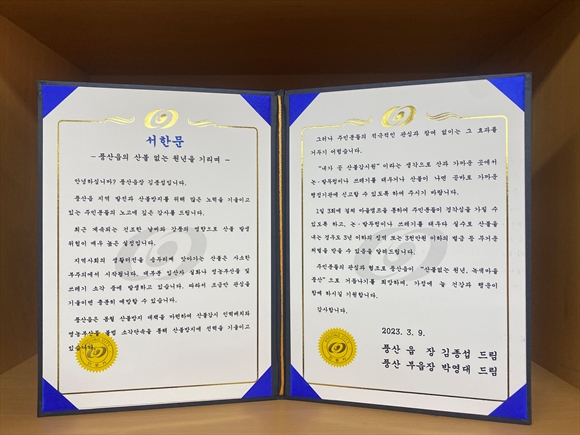 서한문
- 풍산읍의 산불 없는 원년을 기리며 -
안녕하십니까? 풍산읍장 김종섭입니다.
풍산읍 지역 발전과 산불방지를 위해 많은 노력을 기울이고
있는 주민분들의 노고에 깊은 감사를 드립니다.
최근 계속되는 건조한 날씨와 강풍의 영향으로 산불 발생
위험이 매우 높은 실정입니다.
지역사회의 생활터전을 송두리째 앗아가는 산불은 사소한
부주의에서 시작됩니다. 대부분 입산자 실화나 영농부산물 및
쓰레기 소각 중에 발생하고 있습니다. 따라서 조금만 관심을
기울이면 충분히 예방할 수 있습니다.
풍산읍은 봄철 산불방지 대책을 마련하여 산불감시 인력배치와
영농부산물 불법 소각단속을 통해 산불방지에 전력을 기울이고
있습니다.
그러나 주민분들의 적극적인 관심과 참여 없이는 그 효과를
거두기 어렵습니다.
"내가 곧 산불감시원" 이라는 생각으로 산과 가까운 곳에서
논·밭두렁이나 쓰레기를 태우거나 산불이 나면 곧바로 가까운
행정기관에 신고할 수 있도록 하여 주시기 바랍니다.
1일 3회에 걸쳐 마을앰프를 통하여 주민분들이 경각심을 가질 수
있도록 하고, 논·밭두렁이나 쓰레기를 태우다 실수로 산불을
내는 경우도 3년 이하의 징역 또는 3천만원 이하의 벌금 등 무거운
처벌을 받을 수 있음을 알려드립니다.
주민분들의 관심과 협조로 풍산읍이 "산불없는 원년, 녹색마을
풍산" 으로 거듭나기를 희망하며, 가정에 늘 건강과 행운이
함께 하시길 기원합니다.
감사합니다.
2023. 3. 9.
풍산 읍 장 김종섭 드림
풍산 부읍장 박영대 드림